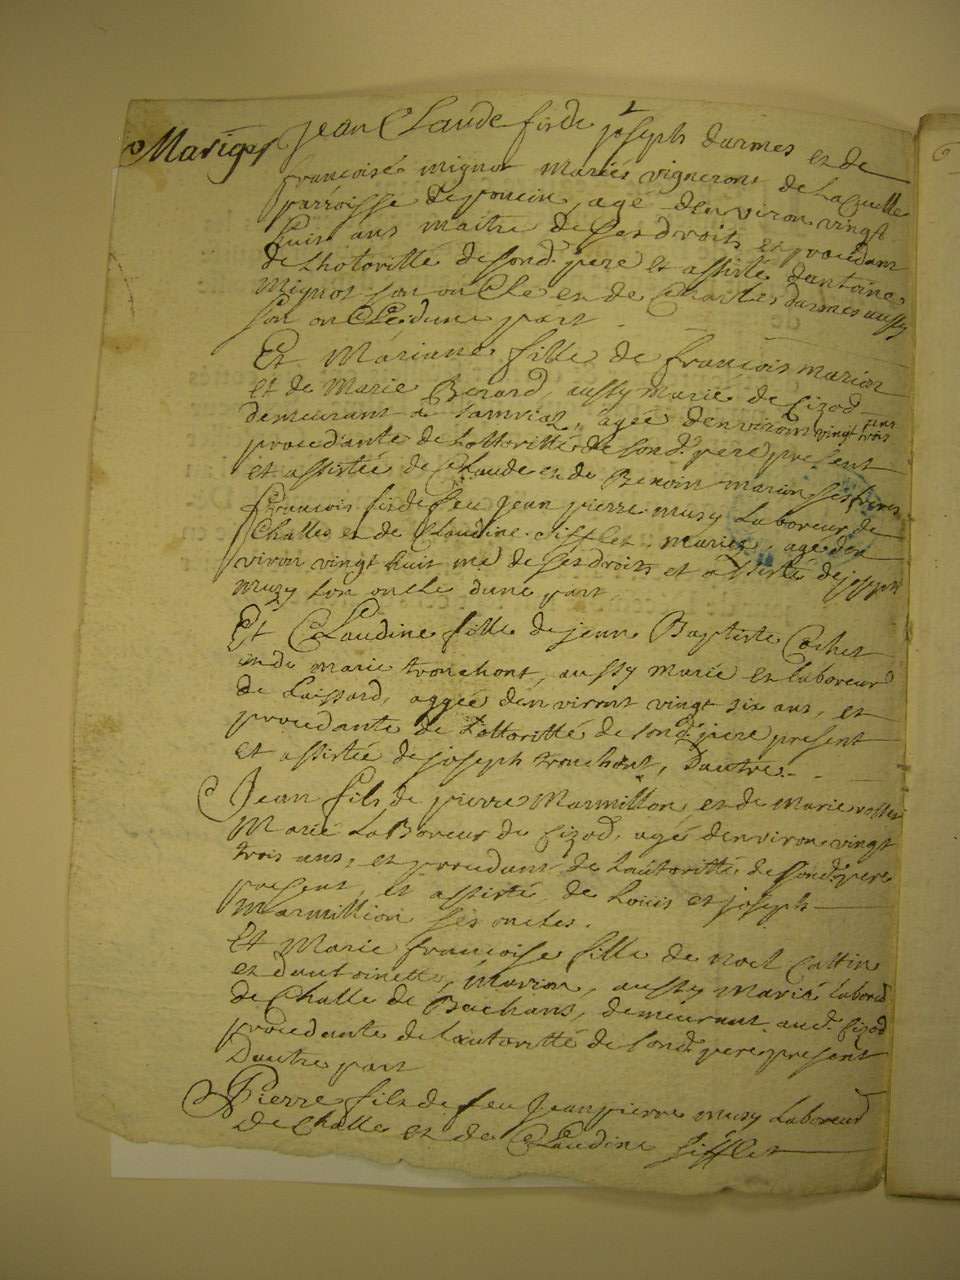 Mariges
Jean Claude fis de joseph darmes et de
francoise mignot mariés vignerons de Lacuelle
parroisse de poncin, agé denviron vingt
huit ans maitre de ses droits et procédant
de Lhotoritté de sond. pere et assisté dantoine
Mignot son oncle et de Charles darmes aussy
son oncle, dune part.
Et Marianne fille de francois marion
et de Marie Berard, aussy marié de Cizod
demeurant a agée denviron vingt trois ans
procedante de Lottoritté de sond. pere present
et assistée de Claude et de Benoit marion ses freres
francois fis de feu Jean pierre musy Laboreur de
Challes et de Claudine Sifflet mariez, agé den
viron vingt huit me de ses droits et assisté de joseph
muzy son oncle dune part,
Et Claudine fille de jean Baptiste Cochet
et de marie tronchont, aussy marié et laboreur
de Laissard, aggée denviront vingt six ans, et
procedante de Lottoritté de sond. pere present
et assistée de joseph tronchont, Dautre.
Jean fils de pierre Marmillon, et de Marie
Marié LaBoreur de Cizod, agé denviron vingt
trois ans, et procedant de Lautoritté de sond. pere
present, et assisté de Louis et joseph
Marmillion ses oncles.
Et Marie francoise fille de noel Cattin
et dantoinette Marion, aussy marié labord
de Challe de Bachans, demeurant aud. Cizod
procedante de lautoritté de sond. pere present
Dautre part
Pierre fils de feu Jean pierre musy Laboreur
De Challe et de Claudine sifflet